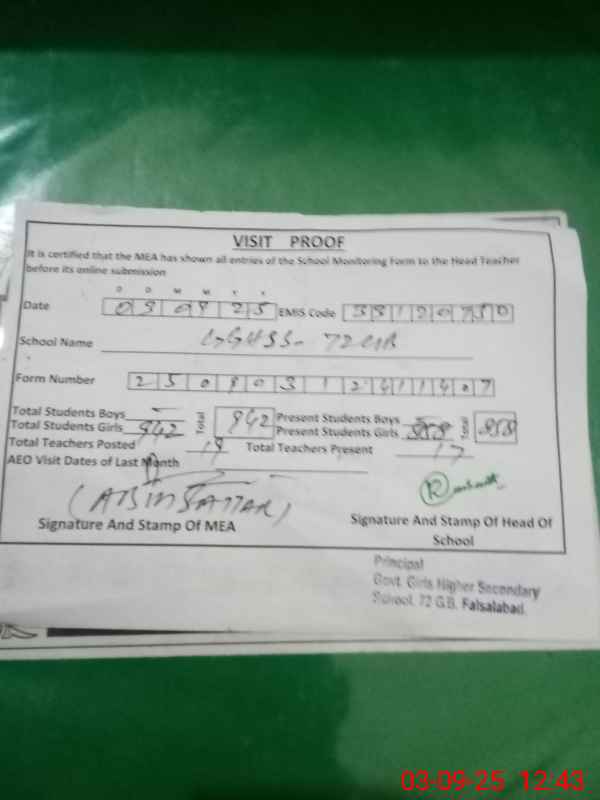 VISIT PROOF
It is certified that the MEA has shown all entries of the School Monitoring Form to the Head Teacher
before its online submission
D D M M Y Y
Date 030925 EMIS Code
School Name GGHSS- 72 GB
Form Number
Total Students Boys - Total 942 Present Students Boys - Total 858
Total Students Girls 942 Present Students Girls 858
Total Teachers Posted 19 Total Teachers Present 17
AEO Visit Dates of Last Month
Signature And Stamp Of MEA
Signature And Stamp Of Head Of
School
Principal
Govt. Girls Higher Secondary
School, 72 G.B. Faisalabad.
03-09-25 12:43